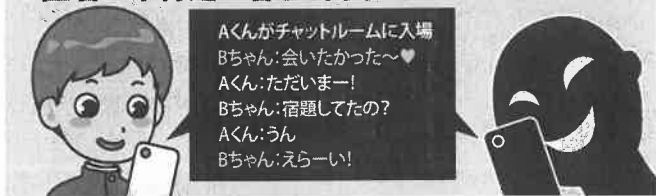 Aくんがチャットルームに入場
Bちゃん:会いたかった〜♥
Aくん:ただいまー!
Bちゃん:宿題してたの?
Aくん:うん
Bちゃん:えらーい!